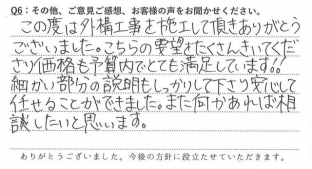 Q6：その他、ご意見ご感想、お客様の声をお聞かせください。
この度は外構工事を施工して頂きありがとう
ございました。こちらの要望をたくさんきいてくだ
さり価格も予算内でとても満足しています!!
細かい部分の説明もしっかりして下さり安心して
任せることができました。また何かあれば相
談したいと思います。
ありがとうございました。今後の方針に役立たせていただきます。